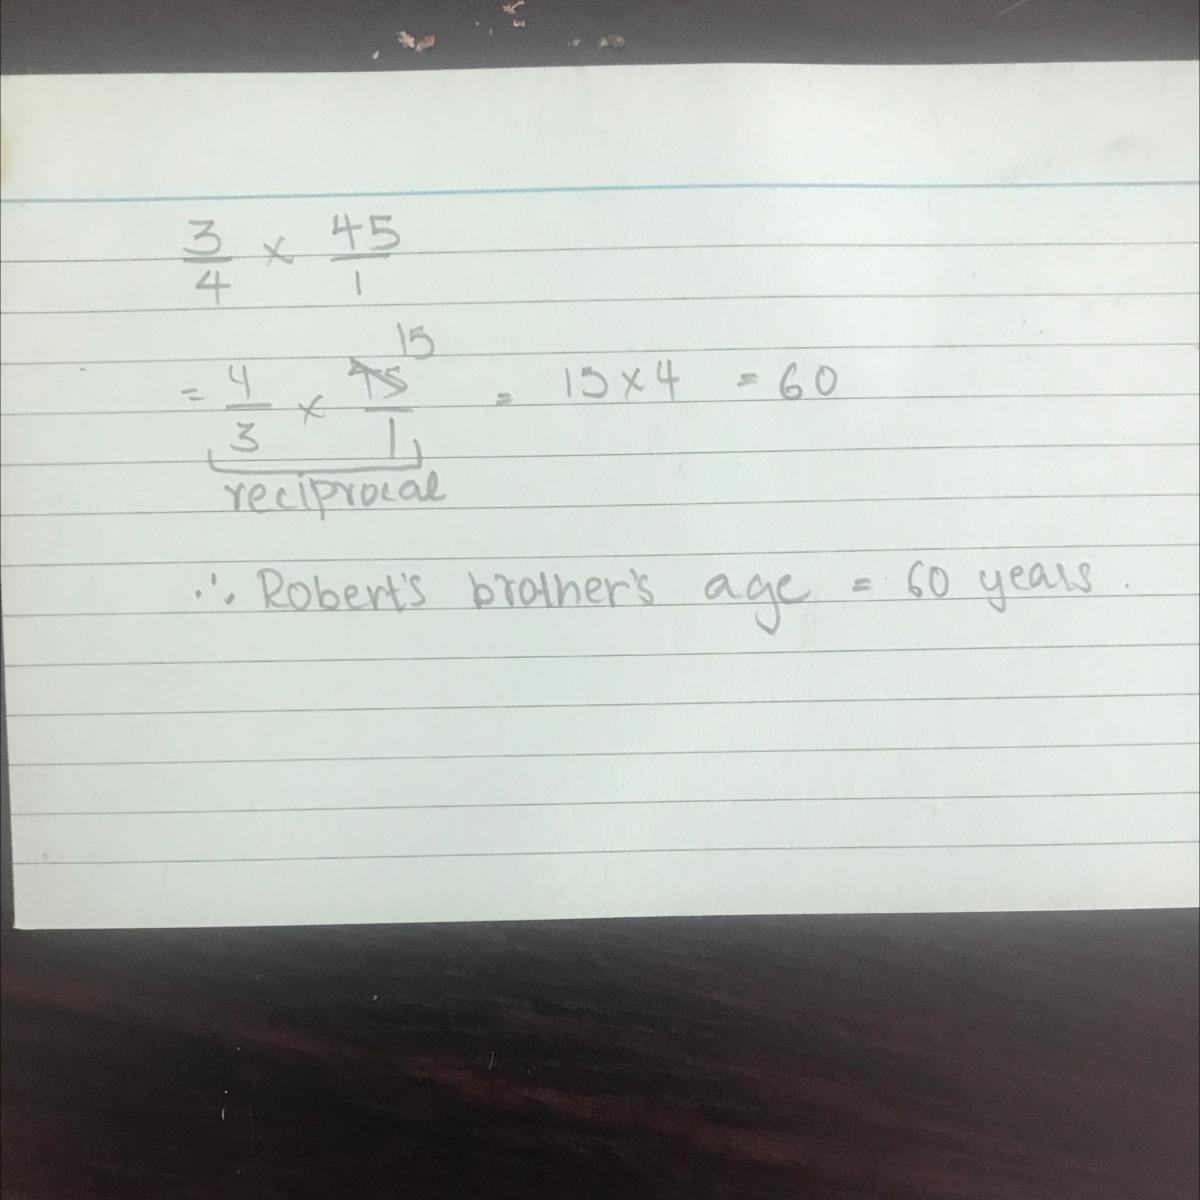 3/4 × 45/1
15
= 4/3 × 45/1 = 15 × 4 = 60
reciprocal
∴ Robert's brother's age = 60 years.